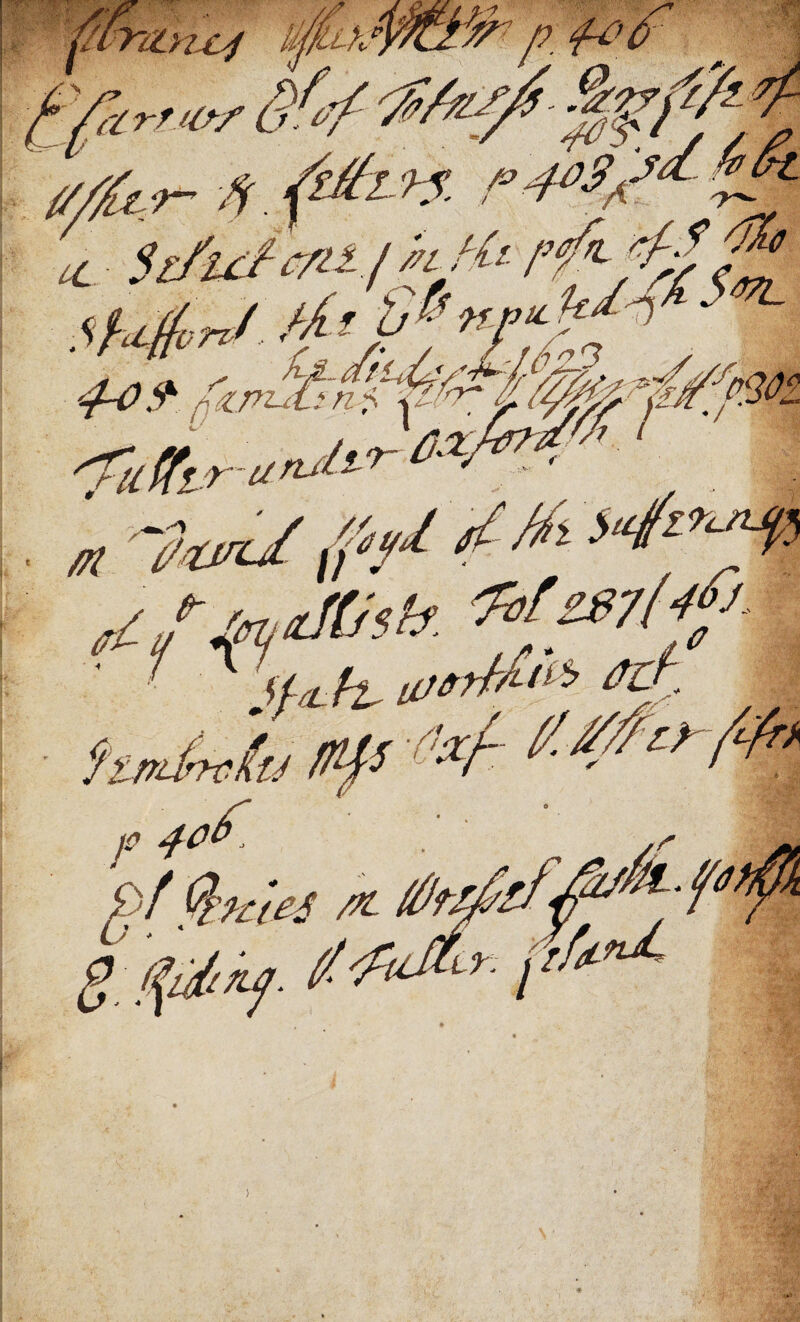 Libraries Ushers Letters p. 406
G Carews El of Totness. Pars life of
405
Usher & Letters. p 403 sd to be
a Select one / in the posn of Sr Tho
Stafford the Els reputed Son
he died 1623
405 Camdens Libr V. Usser Letts p302
Fuller under Oxfordsh
m David Lloyd of the Sufferings
of ye Loyallists. Fol 287 / 461
State worthies octo
Pembrokes Mss Oxf V. Usher life
p 406
El Percies in Wressel Castle. yorksh
E. Riding. V. Fuller. Leland